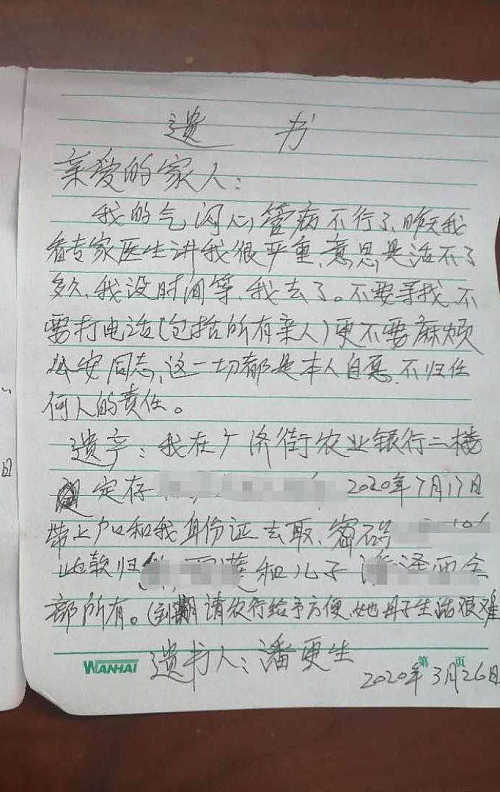 遗书
亲爱的家人:
我的气闷心管病不行了,昨天我
看专家医生讲我很严重,意思是活不了
多久,我没时间等,我去了。不要寻找,不
要打电话(包括所有亲人)更不要麻烦
公安同志,这一切都是本人自愿,不归任
何人的责任。
遗产:我在广济街农业银行二楼
定存 2020年7月17日
带上户口和我身份证去取,密码
此款归 和儿子 全
部所有。(到期请农行给予方便,她母子生活很难
遗书人:潘更生
WANHAI 第 页
2020年3月26日
日